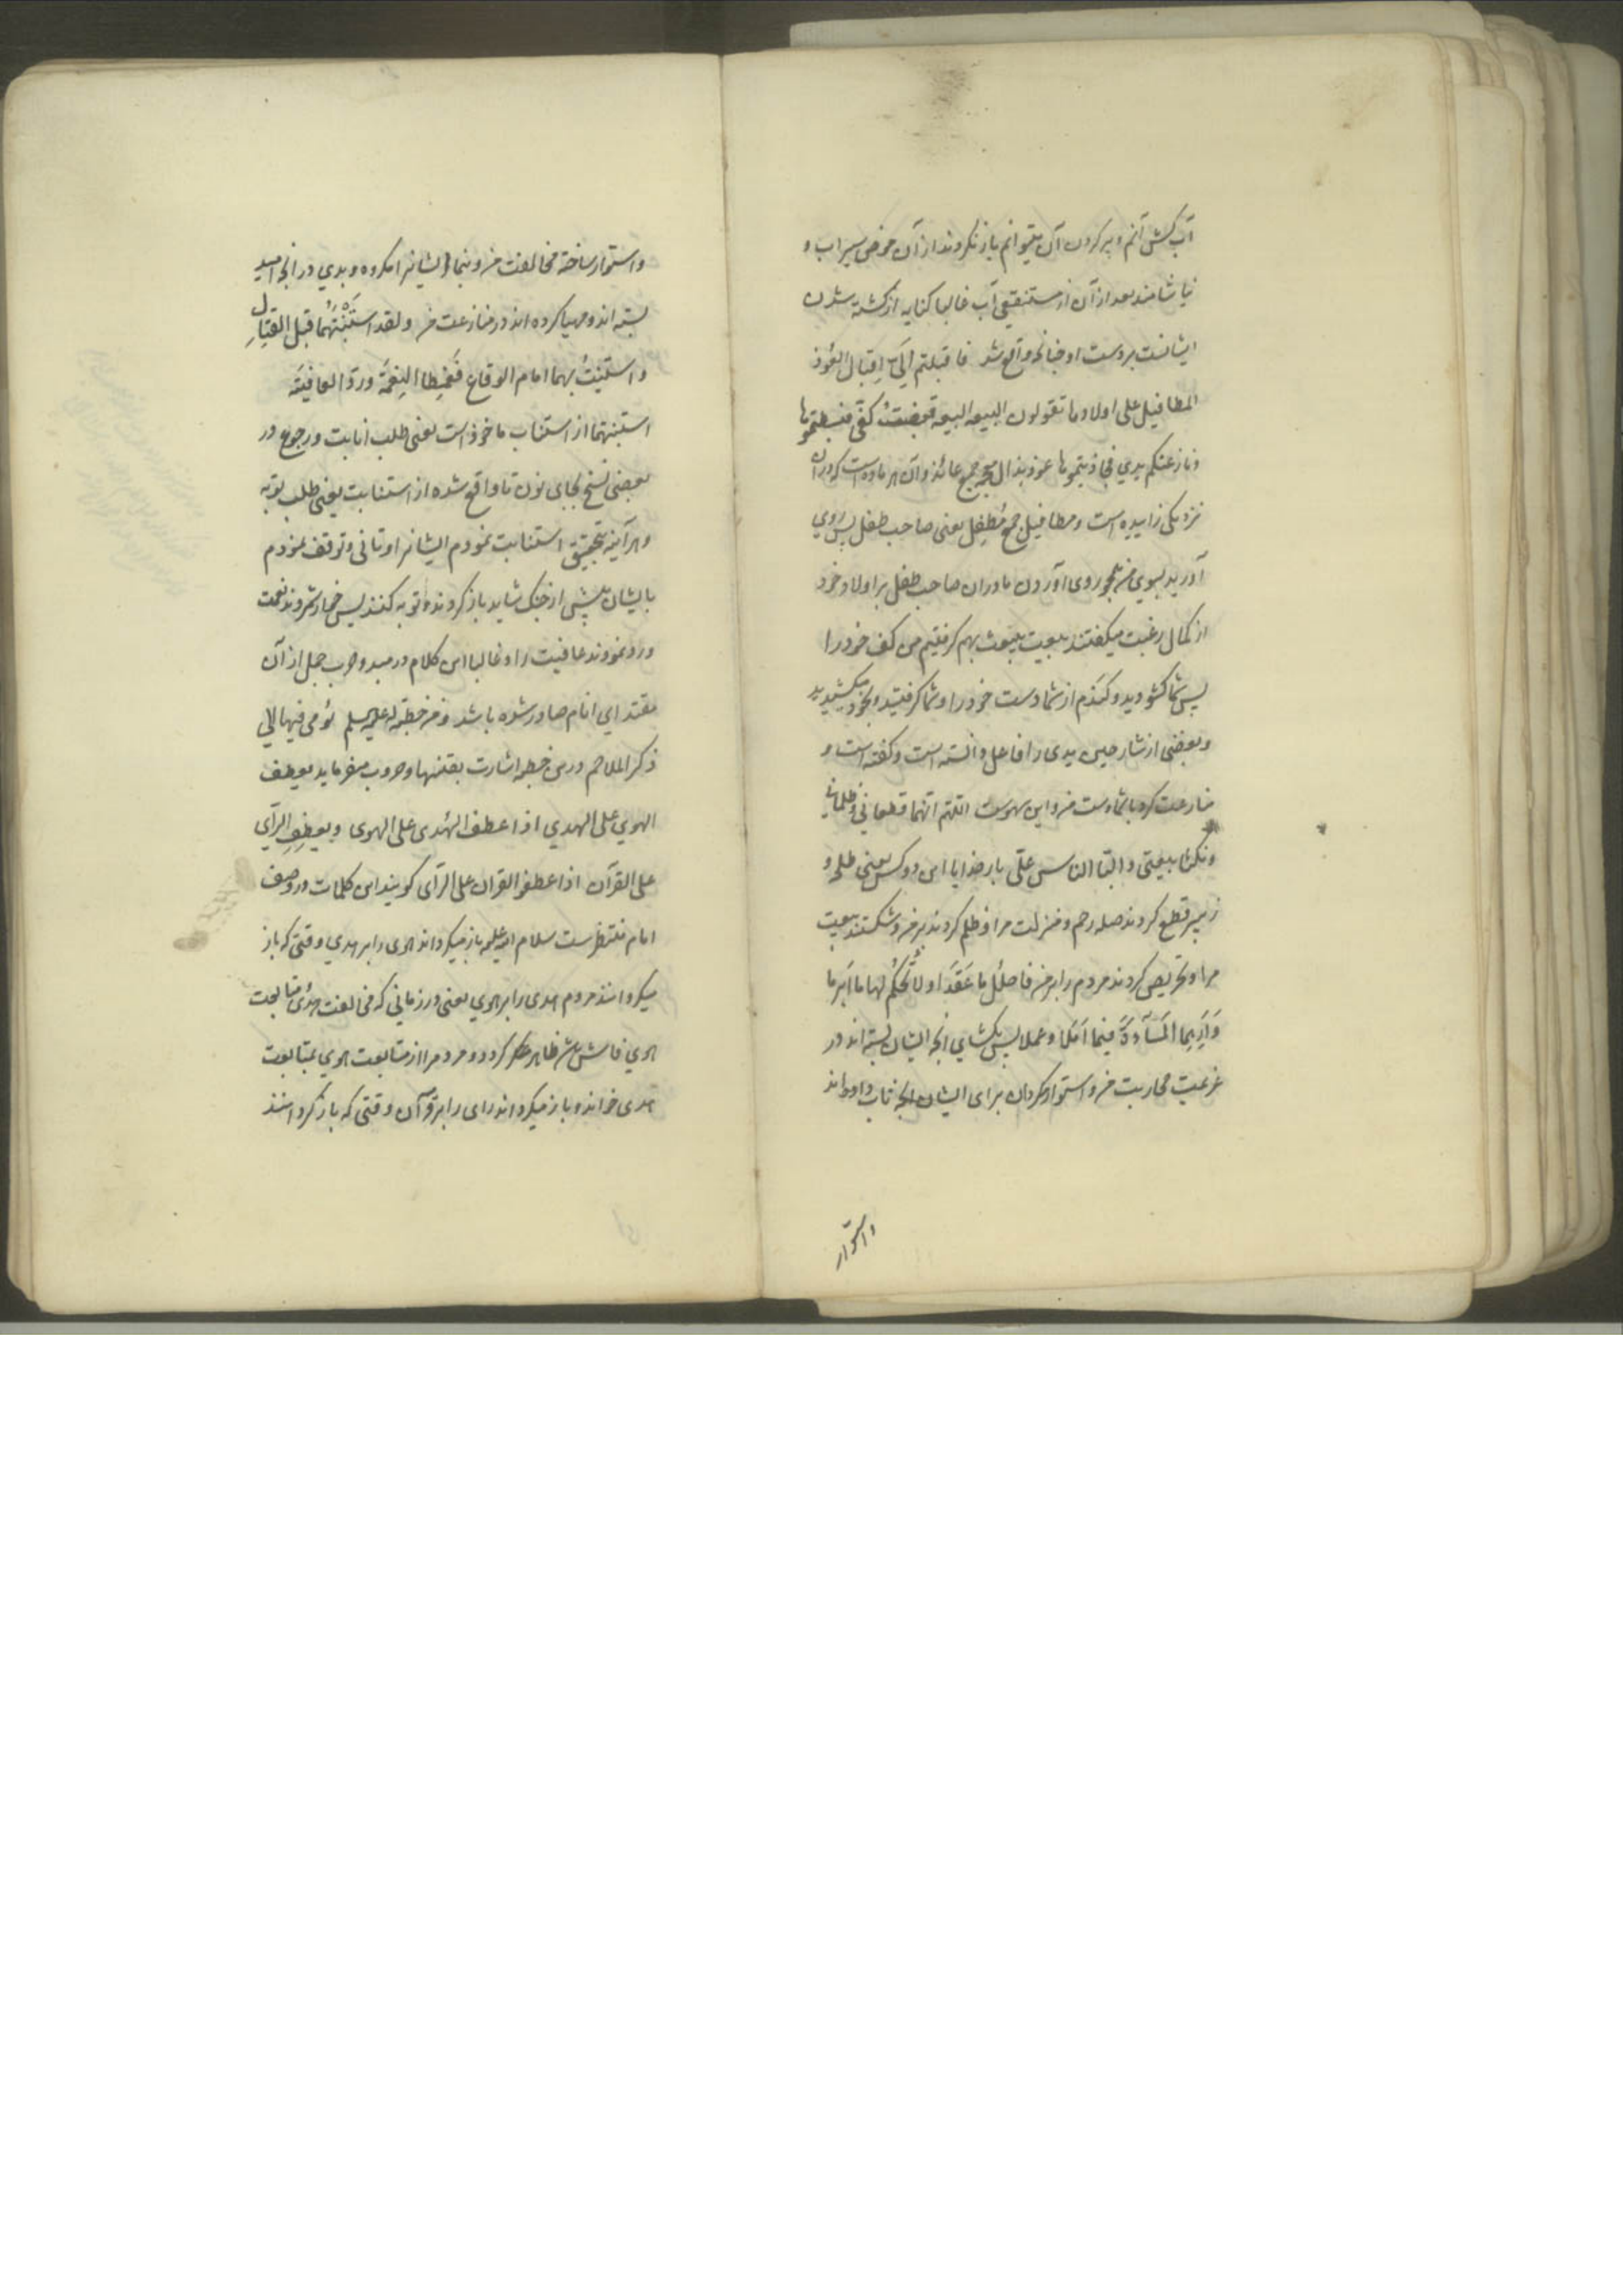 آب کش آنم و پر کردن آن میتوانم باز نکردند از آن حوض سیراب و
نیاشامند بعد از آن از مستنقعی آب غالبا کنایه از کشته شدن
ایشانست بر دست او چنانچه واقع شد فاقبلتم الیّ اقبال العُوذ
المطافیل علی اولادها تقولون البیعه البیعه قبضتُ کفّی فبسطتموها
و نازعتکم یدی فجاذبتموها عوذ بذال معجمه جمع عائذ و آن هر ماده است که در آن
نزدیکی زاییده است و مطافیل جمع مُطفِل یعنی صاحب طفل پس روی
آوردید بسوی من همچو روی آوردن مادران صاحب طفل بر اولاد خود
از کمال رغبت میگفتند بیعت بیعت بهم گرفتیم من کف خود را
پس شما کشودید و کشیدم از شما دست خود را و شما گرفتید و بخود میکشیدید
و بعضی از شارحین یدی را فاعل دانسته است و گفته است و
منازعت کرد با شما دست من و این سهوست اللهم انهما قطعانی و ظلمانی
و نکثا بیعتی و البّا الناس علیّ بار خدایا این دو کس یعنی طلحه و
زبیر قطع کردند صله رحم و منزلت مرا و ظلم کردند بر من و شکستند بیعت
مرا و تحریص کردند مردم را بر من فاحلُل ما عَقَدا و لا تُحکم لهما ما ابرما
وَ اَرِهِما المَسآءَةَ فیما اَمّلا و عملا پس بکشای آنچه ایشان بسته اند در
عزیمت محاربت من و استوار مکردان برای ایشان آنچه تاب داده اند
و استوار
و استوار ساخته مخالفت من و بنما ایشانرا مکروه و بدی در آنچه امید
بسته اند و مهیا کرده اند در منازعت من و لقد استَثَبْتُهُما قبل القتالِ
و استأنیتُ بهما امام الوقاع فَغَمِطا النِعمَةَ و ردّا العافیَة
استثبتهما از استثاب ماخوذ است یعنی طلب انابت و رجوع در
بعضی نسخ بجای نون تا واقع شده از استتابت یعنی طلب توبه
و هر آینه بتحقیق استتابت نمودم ایشانرا و تانی و توقف نمودم
بایشان پیش از جنک شاید باز کردند و توبه کنند پس خوار شمردند نعمت
و رد نمودند عافیت را و غالبا این کلام در مبدء حرب جمل از آن
مقتدای انام صادر شده باشد و من خطبة له علیه السلم یُومی فیها الی
ذکر الملاحم درین خطبه اشارت بفتنها و حروب میفرماید یعطف
الهوی علی الهدی اذا عطفوا الهُدی علی الهوی و یعطِفِ الرآی
علی القرآن اذا عطفوا القران علی الرآی کویند این کلمات در وصف
امام منتظر ست سلام الله علیه باز میکرداند هوی را بر هدی وقتی که باز
میکردانند مردم هدی را بر هوی یعنی در زمانی که مخالفت هُدی متابعت
هوی فاش شده ظاهر کردد و مردم را از متابعت هوی بمتابعت
هدی خواند و باز میکرداند رای را بر قرآن وقتی که باز کردانند